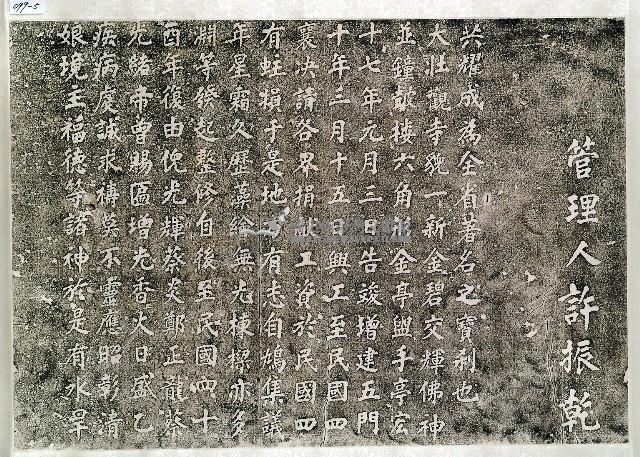 099-5
娘境主福德等諸神於是有水旱
疾病虔誠求禱莫不靈應昭彰清
光緒帝曾賜匾增光香火日盛乙
酉年復由倪光輝蔡炎鄭正龍蔡
等發起整修自後至民國四十
年星霜久歷藻繪無光棟樑亦多
有蛀損于是地方有志自鳩集議
襄決請各界捐獻工資於民國四
十年三月十五日興工至民國四
十七年元月三日告竣增建五門
並鐘鼓樓六角形金亭與手亭宏
大壯觀寺貌一新金碧交輝佛神
共耀成為全省著名之寶剎也
管理人許振乾